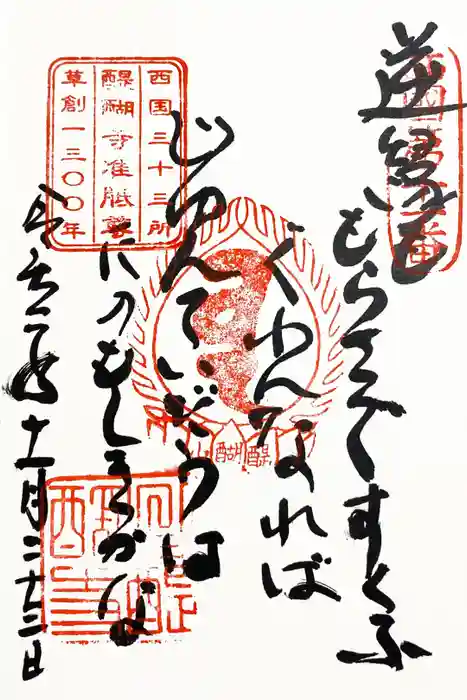 西国第十一番
逆縁も
もらさですくふ
くわんなれば
じゆんていどうは
たのもしきかな
十一月二十三日
西国三十三所
醍醐寺准胝尊
草創一三〇〇年
醍醐山